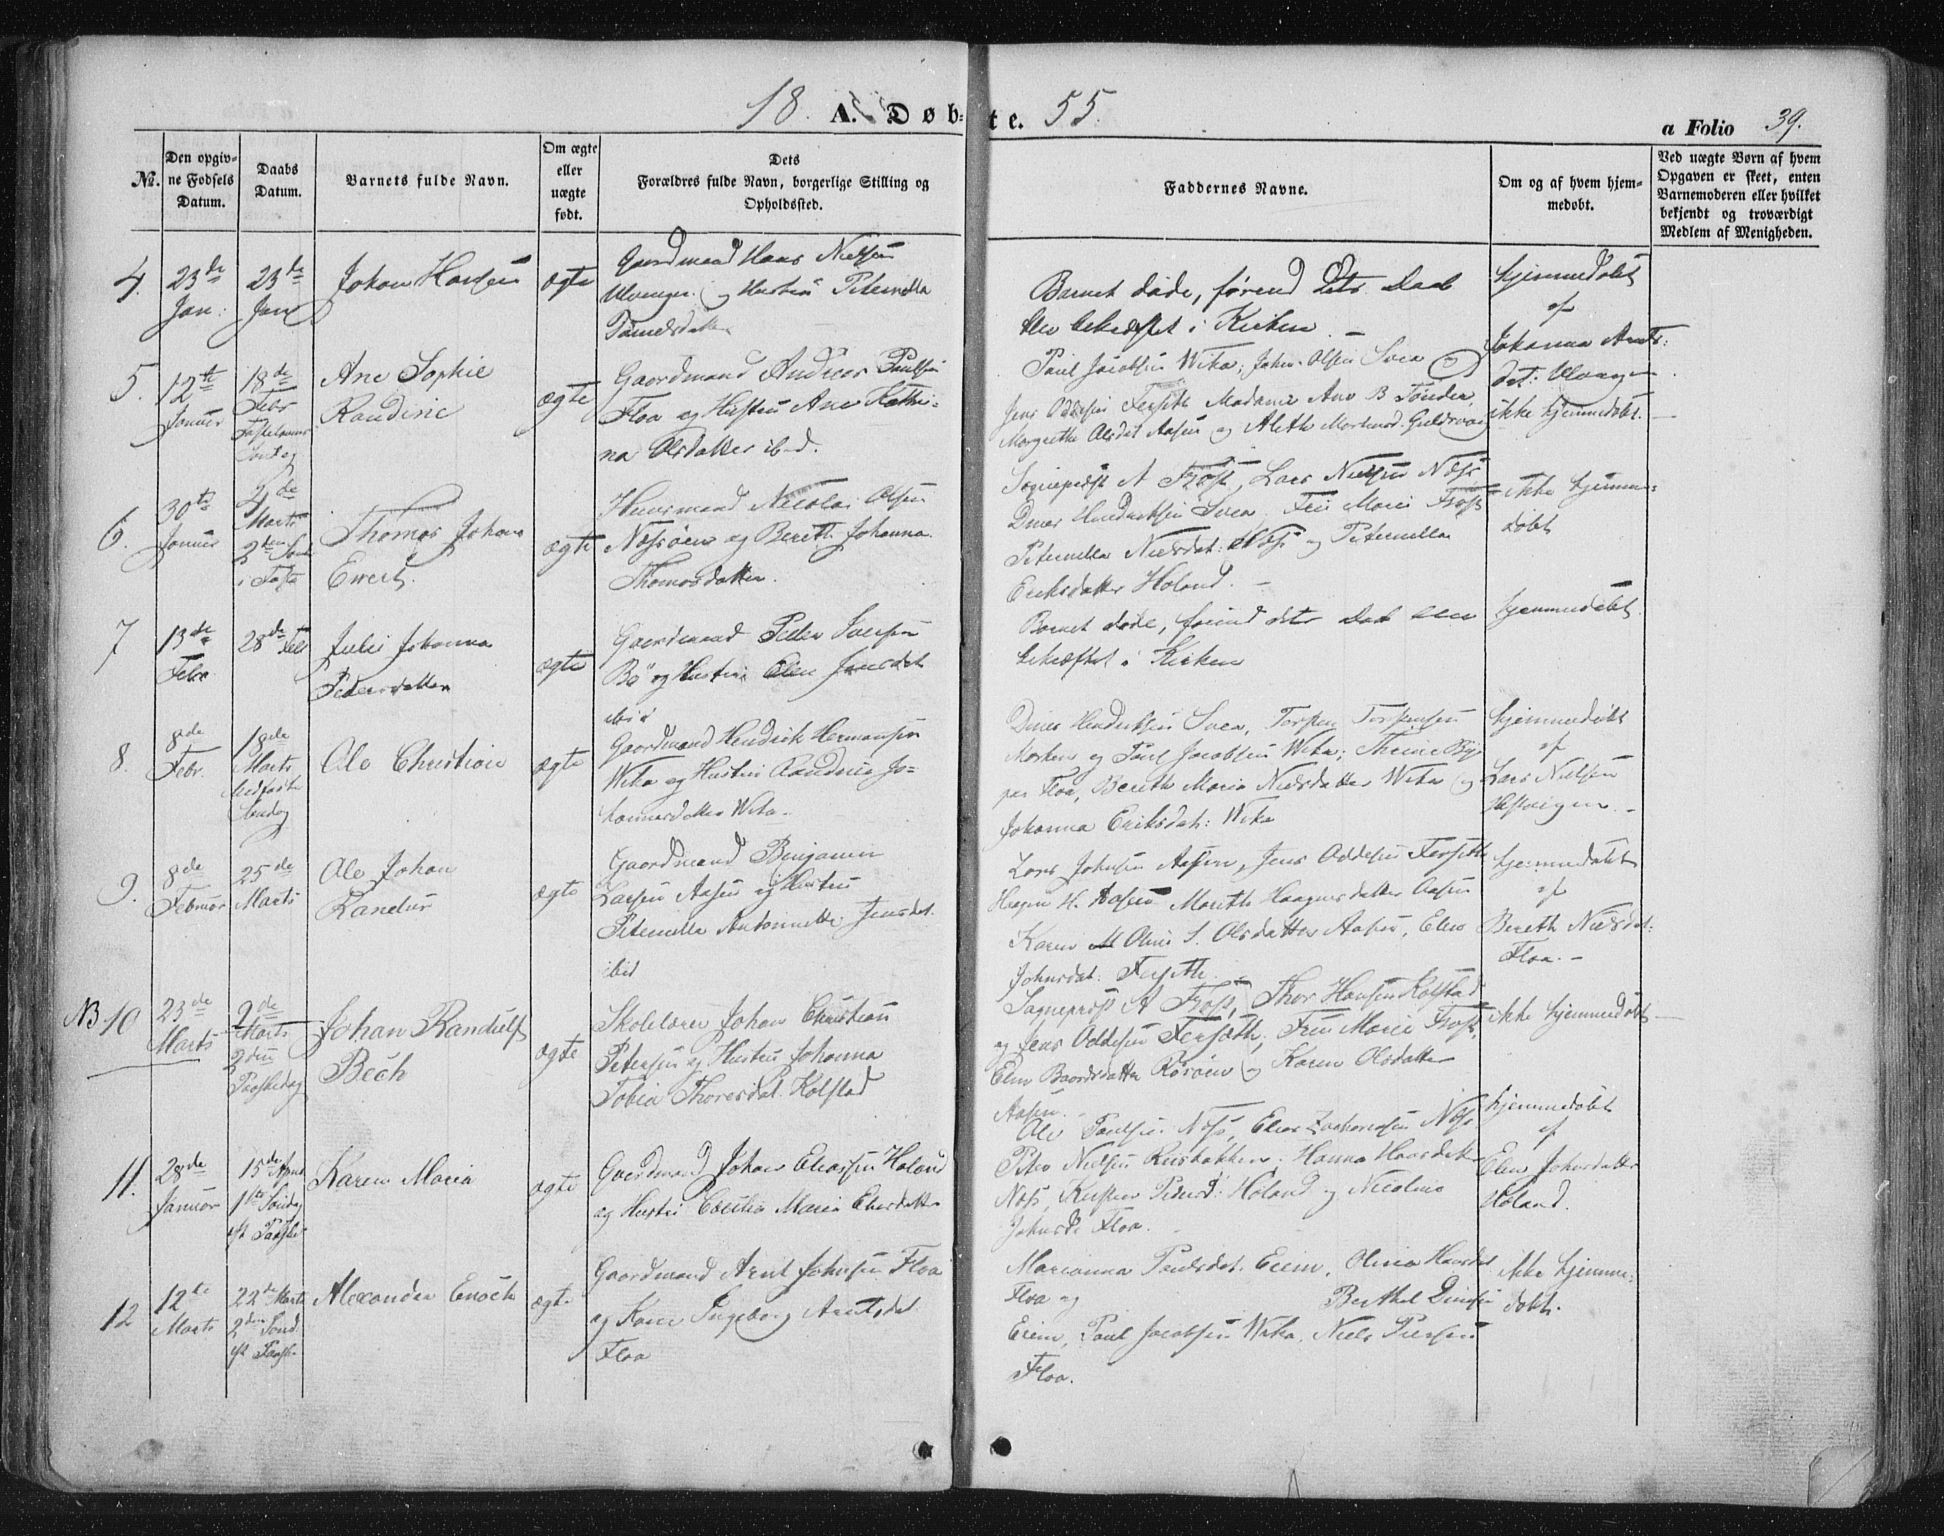 18 A. Døb- te. 55.
a Folio 39.
No.
Den opgiv-
ne Fødsels
Datum.
Daabs
Datum.
Barnets fulde Navn.
Om ægte
eller
uægte
født.
Dets
Forældres fulde Navn, borgerlige Stilling og
Opholdssted.
Faddernes Navne.
Om og af hvem hjem-
medøbt.
Ved uægte Børn af hvem
Opgaven er skeet, enten
Barnemoderen eller hvilket
bekjendt og troværdigt
Medlem af Menigheden.
4.
23de
Jan:
23de
Jan
Johan Hansen
ægte
Gaardmand Hans Nielsen
Ulvangen og Hustru Peternella
Danielsdatter
Barnet døde, førend Dets Daab
blev bekræftet i Kirken.
hjemmedøbt
af
Johanna Arnts:
dat:
5.
12te
Januar
18de
Febr
Fastelavns
Sondag
Ane Sophie
Randine
ægte
Gaardmand Andreas Paulsen
Floa og Hustru Ane Kathri-
na Olsdatter ibid.
Paul Jacobsen Wika, Johan Olsen Svea og
Jens Oddesen Fersæth Madame Ane B Tønder,
Margrethe Olsdat Aasen og Aleth Mortensd. Guldsvaag
ikke hjemmedøbt.
6.
30te
Januar
4de
Marts
2den Sond
i Faste
Thomas Johan
Ewert.
ægte
Huusmand Nicolai Olsen
Næssøien og Bereth Johanna
Thomasdatter.
Sogneprest A Frost, Lars Nielsen Næss
Dines Hendriksen Svea, Fru Marie Frost
Peternella Nielsdat: Næss og Peternella
Eriksdatter Høland.
ikke hjemme-
døbt
7
13de
Febr
28de Feb
Julie Johanna
Pedersdatter
ægte
Gaardmand Peder Iversen
Bø og Hustru Elen Jensdat
ibid
Barnet døde, førend dets Daab blev
bekræftet i Kirken
hjemmedøbt.
8.
8de
Febr.
18de
Marts
Midfaste
Søndag
Ole Christian
ægte
Gaardmand Hendrik Hermansen
Wika og Hustru Randine Jo-
hannesdatter Wika.
Dines Hendriksen Svea, Torsten Torstensen
Morken og Paul Jacobsen Wika;
Floa, Bereth Maria Nielsdatter Wika og
Johanna Eriksdat: Wika
hjemmedøbt
af
Lars Nielsen
9.
8de
Februar
25de
Marts
Ole Johan
Randur
ægte
Gaardmand Benjamin
Larsen Aasen og Hustru
Peternella Antonnette Jensdat.
ibid
Lars Johnsen Aasen, Jens Oddesen Fersæth
Haagen H. Aasen Mareth Haagensdatter Aasen
Karen M Oline S. Olsdatter Aasen, Elen
Johnsdat: Fersæth.
hjemmedøbt
af
Bereth Nielsdat:
Floa.
NB 10
23de
Marts
2den
Paaskedag
Johan Randulf
Bech
ægte
Skolelærer Johan Christian
Petersen og Hustru Johanna
Tobia Thoresdat. Kolstad
Sogneprest A Frost, Thor Hansen Kolstad
og Jens Oddesen Fersæth, Fru Marie Frost,
Elen Baardsdatter Rørøien og Karen Olsdatter
Aasen.
ikke hjemmedøbt
11.
28de
Januar
15de April
1ste Søndag
eft Paaske
Karen Maria
ægte
Gaardmand Johan Eliassen Høland
og Hustru Cecilia Maria Eliasdatter
Ole Paulsen Næss, Elias Zachariasen Næss
Peter Nielsen Rusbakken, Hanna Hansdatter
Næss, Kirsten Pedersd: Høland og Nicoline
Johnsd: Floa.
hjemmedøbt
af
Elen Johnsdatter
Høland.
12
12te
Marts
22de Marts
2den Sond.
eft Paaske
Alexander Enoch
ægte
Gaardmand Arnt Johnsen Floa
og Kone Ingeborg Arntsdat.
Floa
Marianna Pedersdat. Eiem, Olina Hansdat
Floa og Berthel Dinesen
Eiem, Paul Jacobsen Wika, Niels Iversen
Floa.
ikke hjemme-
døbt.